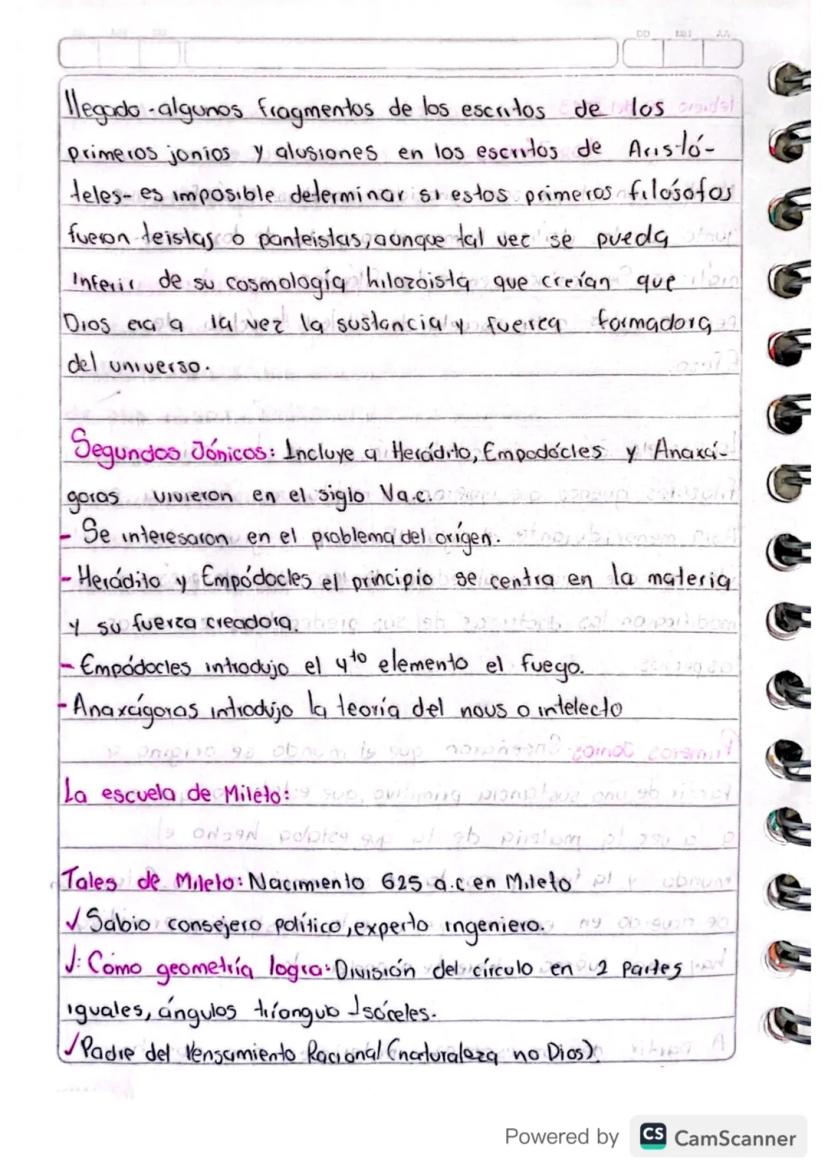 DD MM AA
llegado-algunos fragmentos de los escritos de los
primeros jonios y alusiones en los escritos de Aristó-
teles- es imposible determinar si estos primeros filósofos
fueron teistas o panteistas, aunque tal vez se pueda
inferir de su cosmología hilozoista que creían que
Dios era a la vez la sustancia y fuerza formadora
del universo.
Segundos Jónicos: Incluye a Heráclito, Empodócles y Anaxá-
goras vivieron en el siglo Va.c.
- Se interesaron en el problema del orígen.
- Heráclito y Empódocles el principio se centra en la materia
y su fuerza creadora.
- Empódocles introdujo el 4to elemento el fuego.
- Anaxágoras introdujo la teoría del nous o intelecto
La escuela de Mileto:
Tales de Mileto: Nacimiento 625 a.c en Mileto
✓ Sabio consejero político, experto ingeniero.
✓: Como geometría logra: División del círculo en 2 partes
iguales, ángulos triangulo Isóceles.
✓ Padre del Pensamiento Racional (naturaleza no Dios).
Powered by CS CamScanner